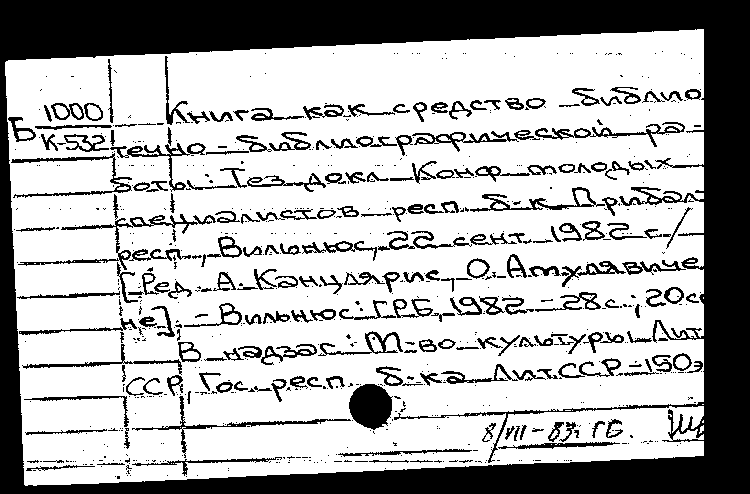 1000 Книга как средство библио
Б К-532 течно-библиографической ра-
боты: Тез. докл. Конф. молодых
специалистов респ. б-к Прибалт.
респ., Вильнюс, 22 сент. 1982 г. /
[Ред. А. Канцлярис, О. Атулявиче
не]. - Вильнюс: ГРБ, 1982. - 28с.; 20см
В надзаг.: М-во культуры Лит.
ССР, Гос. респ. б-ка Лит.ССР - 150э
8/VII-83г. ГБ.